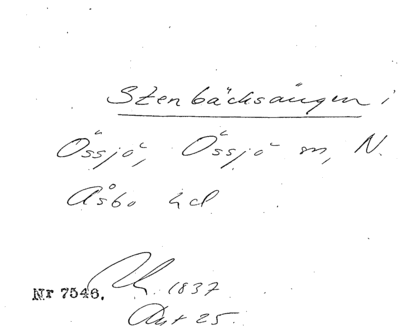 Stenbäcksängen i
Össjö, Össjö sn, N.
Åsbo hd
Nr 7546. 1837
Akt 25.